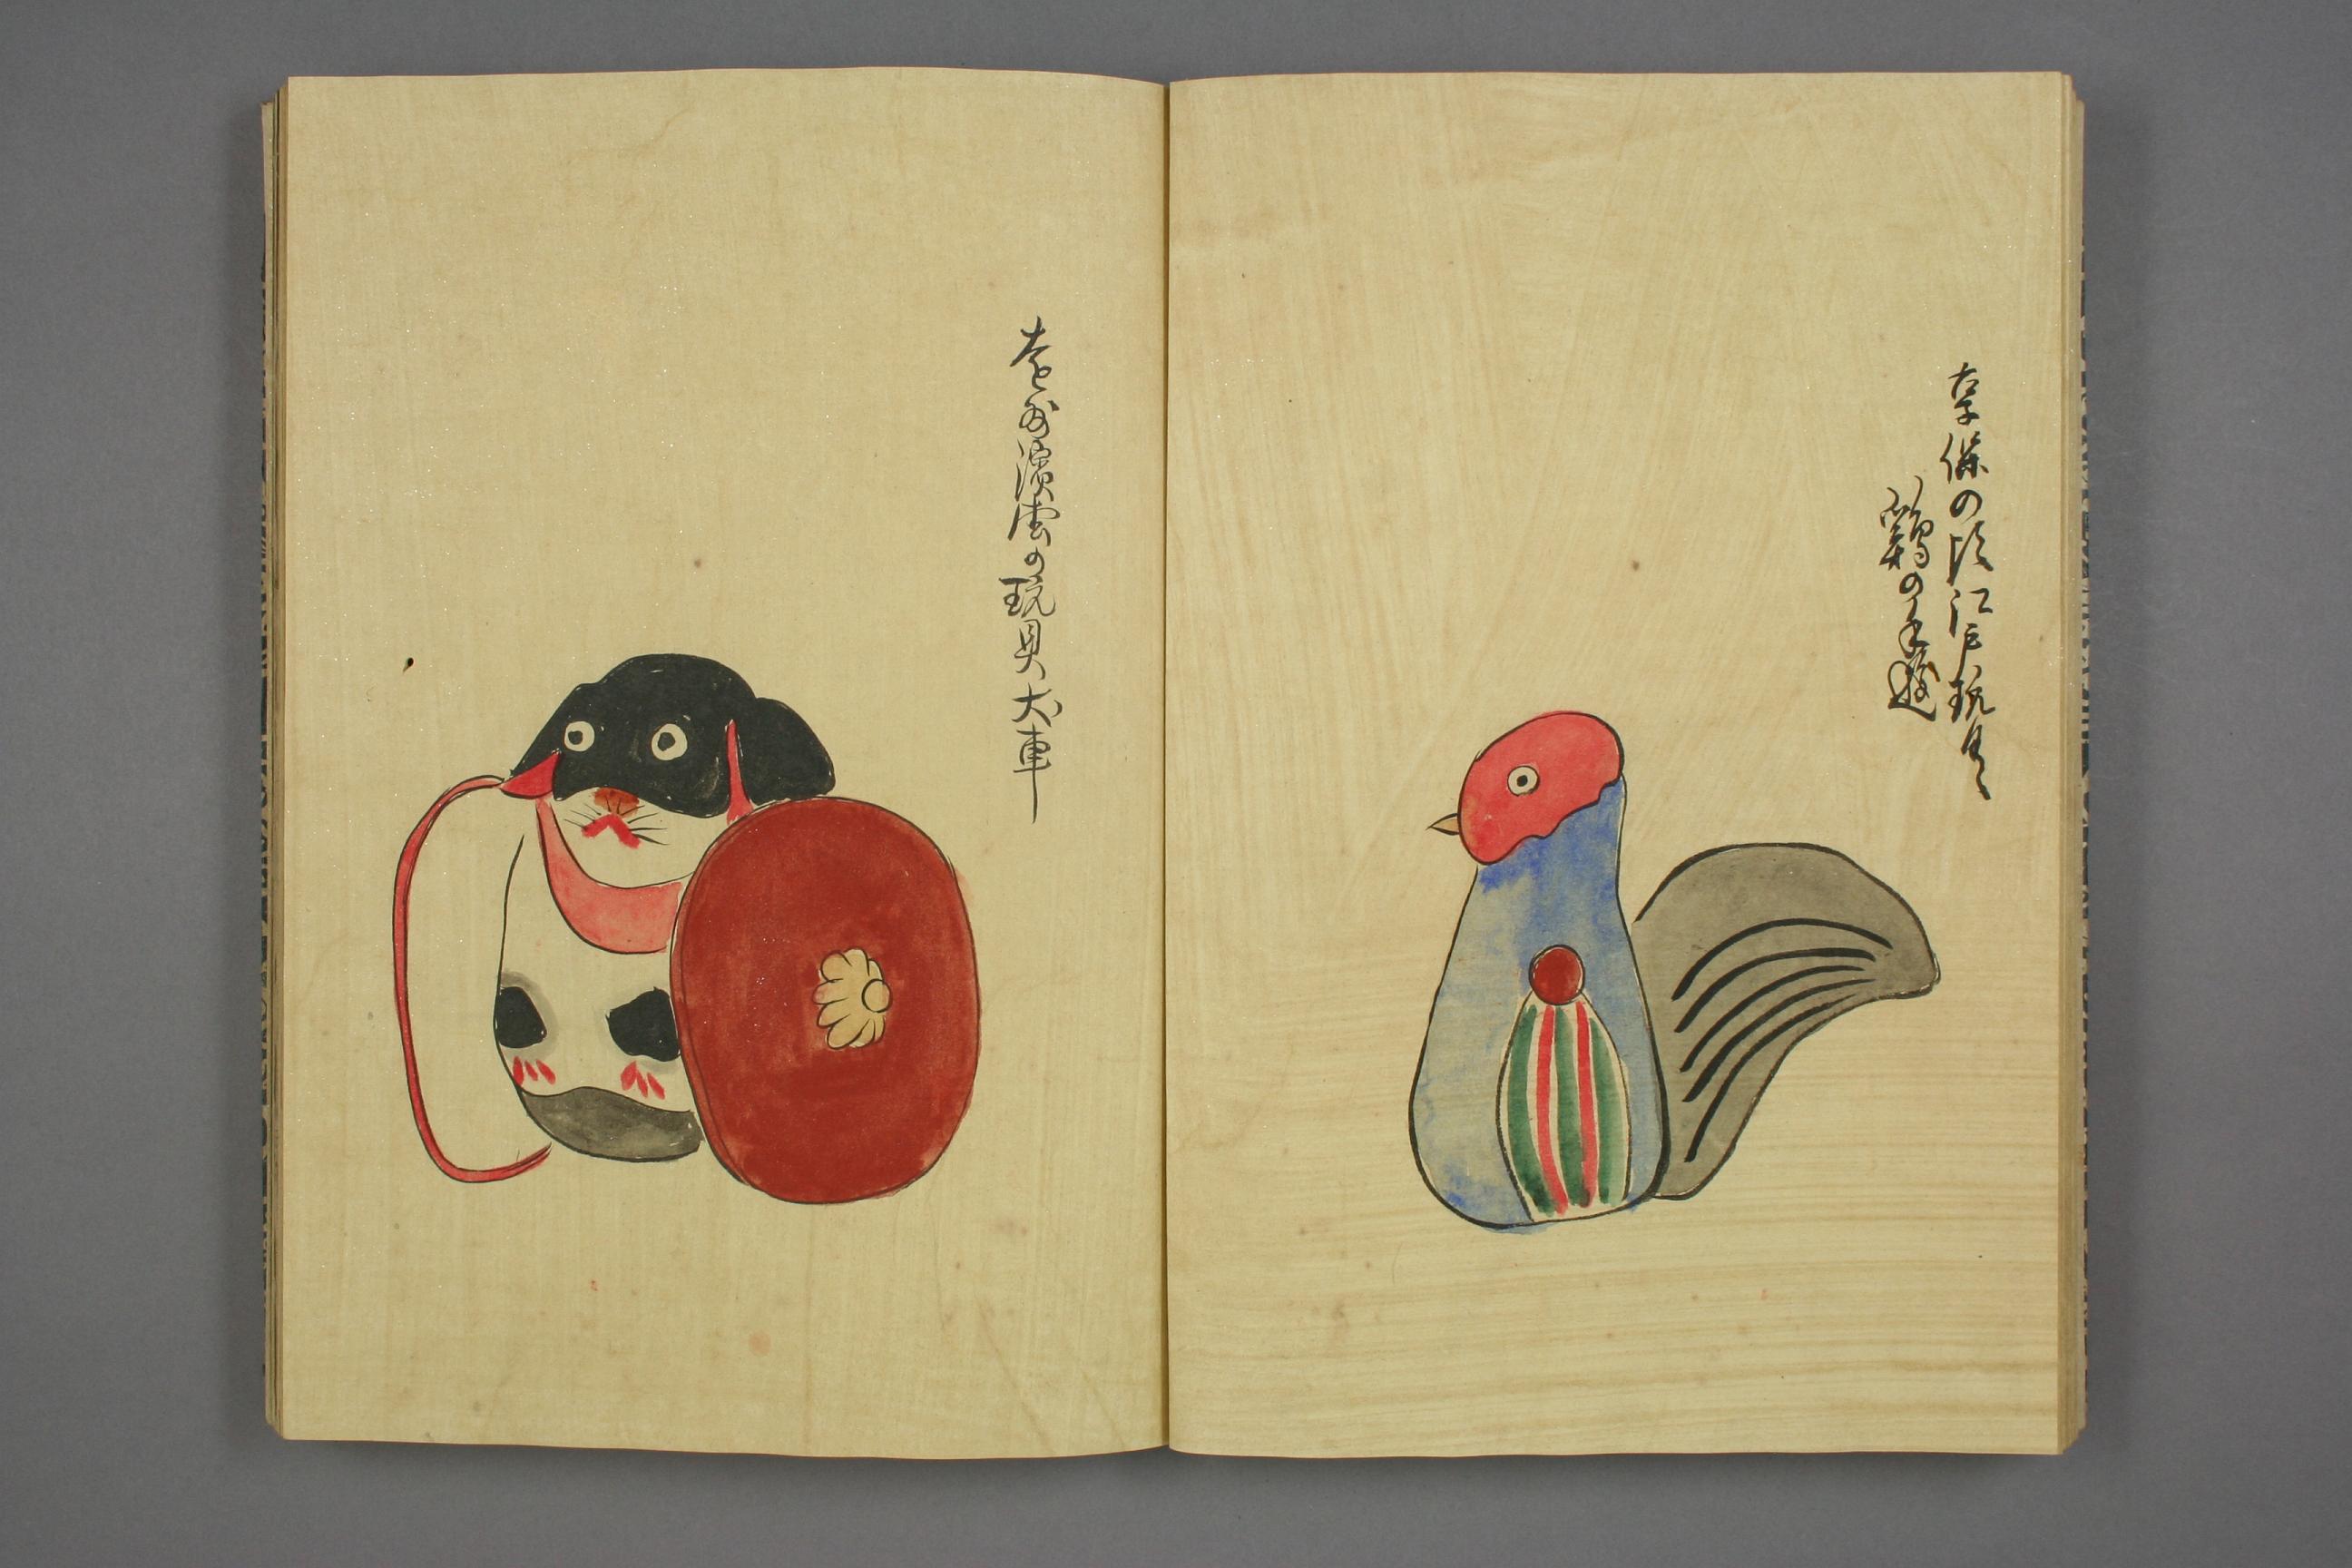 享保の頃江戸玩具
鶏の手遊
遠州濱松の玩具犬車